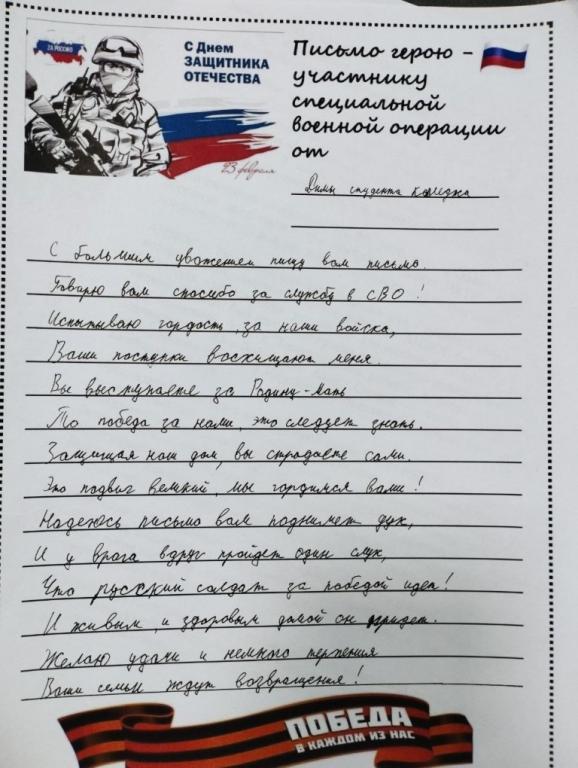 ZA РОССИЮ
С Днем
ЗАЩИТНИКА
ОТЕЧЕСТВА
23 февраля
Письмо герою -
участнику
специальной
военной операции
от
Димы студента колледжа
С большим уважением пишу вам письмо.
Говорю вам спасибо за службу в СВО!
Испытываю гордость за наши войска,
Ваши поступки восхищают меня.
Вы выступаете за Родину-мать
То победа за нами, это следует знать.
Защищая наш дом, вы страдаете сами.
Это подвиг великий, мы гордимся вами!
Надеюсь письмо вам поднимет дух,
И у врага вдруг пройдет один слух,
Что русский солдат за победой идет!
И живым, и здоровым домой он придет.
Желаю удачи и немного терпения
Ваши семьи ждут возвращения!
ПОБЕДА
В КАЖДОМ ИЗ НАС